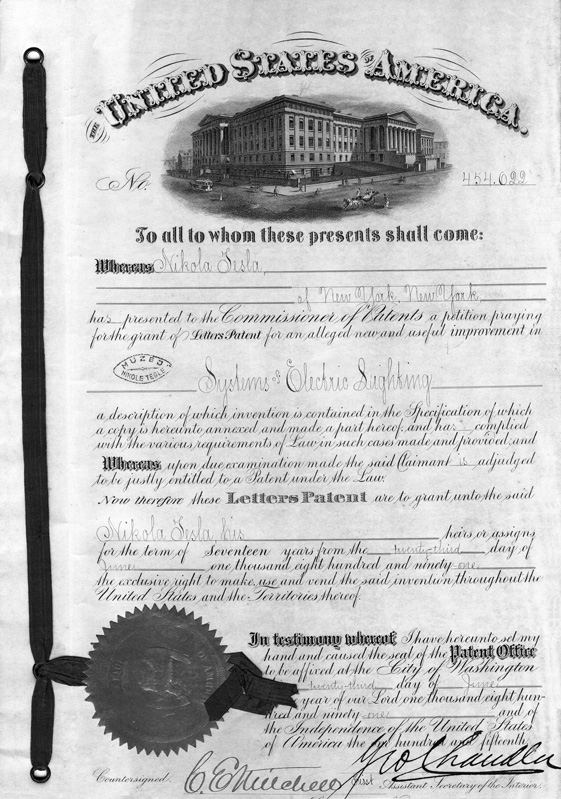 THE UNITED STATES OF AMERICA.
No. 454,622
To all to whom these presents shall come:
Whereas Nikola Tesla,
of New York, New York,
has presented to the Commissioner of Patents a petition praying
for the grant of Letters Patent for an alleged new and useful improvement in
MUZEJ
NIKOLE TESLE
Systems of Electric Lighting
a description of which invention is contained in the Specification of which
a copy is hereunto annexed and made a part hereof, and has complied
with the various requirements of Law in such cases made and provided, and
Whereas upon due examination made the said Claimant is adjudged
to be justly entitled to a Patent under the Law.
Now therefore these Letters Patent are to grant unto the said
Nikola Tesla his heirs or assigns
for the term of Seventeen years from the twenty-third day of
June one thousand eight hundred and ninety-one
the exclusive right to make, use and vend the said invention throughout the
United States and the Territories thereof.
In testimony whereof I have hereunto set my
hand and caused the seal of the Patent Office
to be affixed at the City of Washington
twenty-third day of June
year of our Lord one thousand eight hun-
dred and ninety-one and of
the Independence of the United States
of America the one hundred and fifteenth.
Geo Chandler
Countersigned. C. E. Mitchell First Assistant Secretary of the Interior.